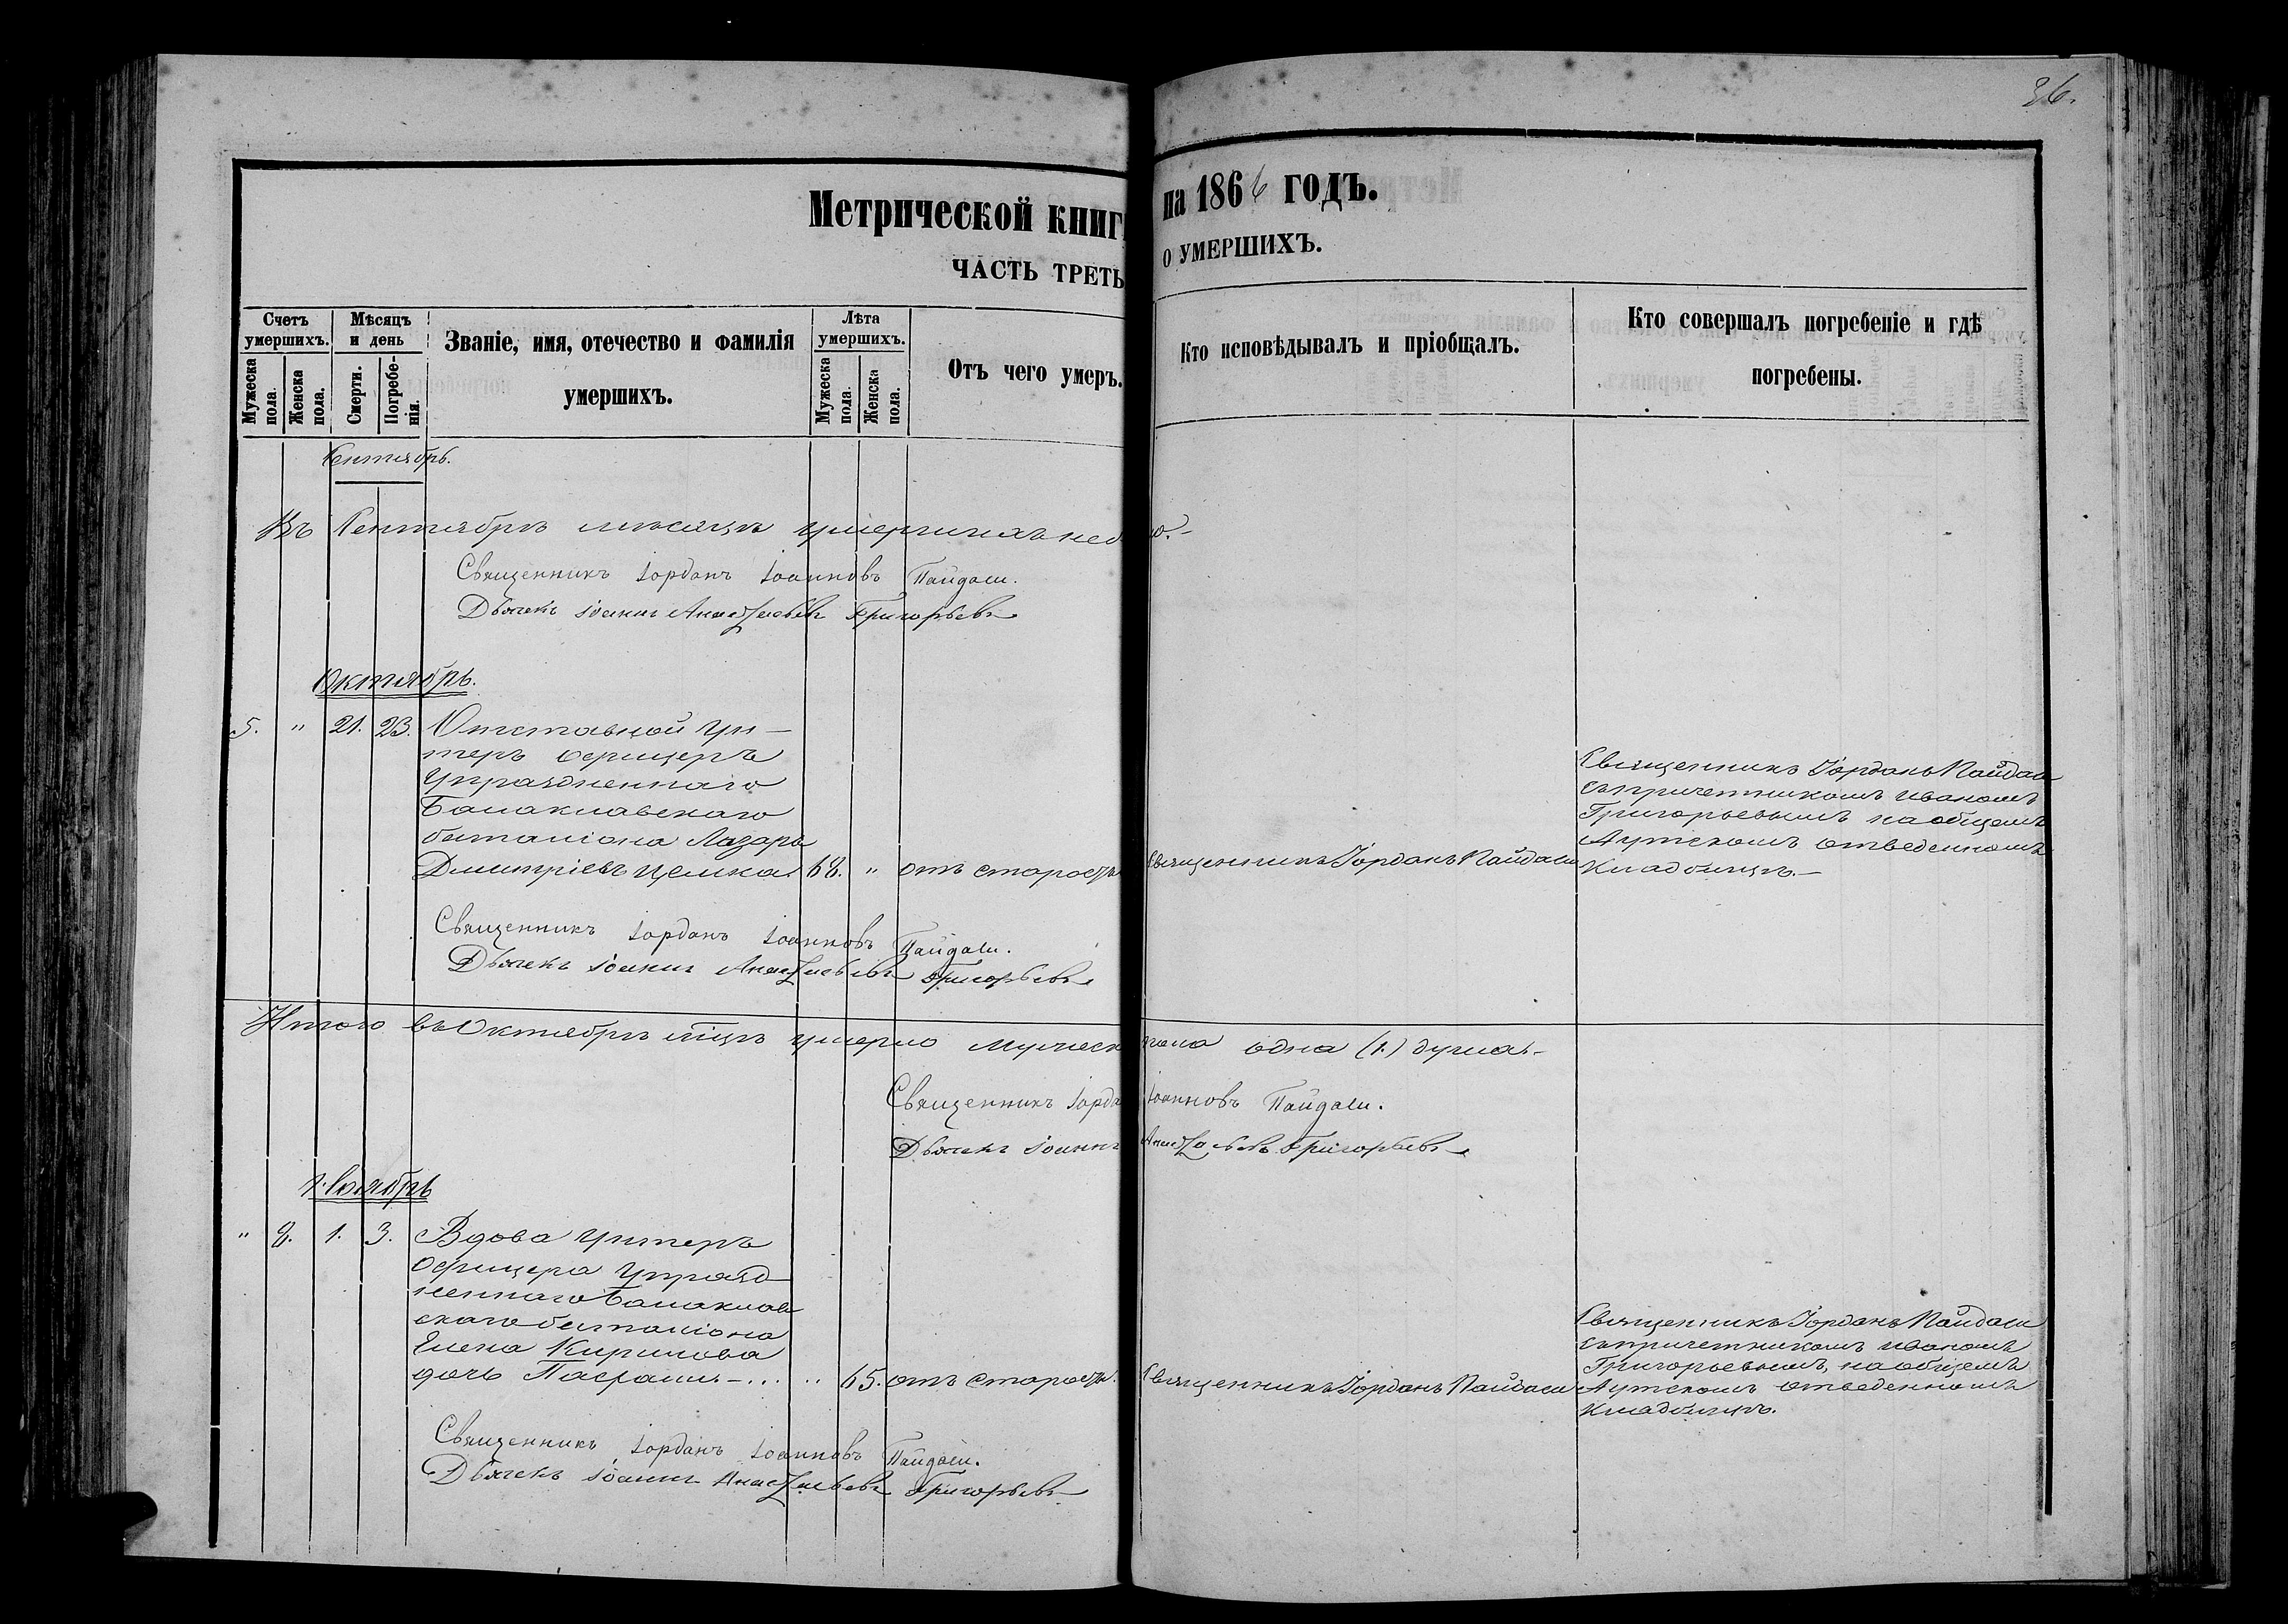 36.
Метрической книг
на 1866 годъ.
ЧАСТЬ ТРЕТЬ
о УМЕРШИХЪ.
Счетъ умершихъ.
Мужеска пола.
Женска пола.
Мѣсяцъ и день
Смерти.
Погребе-
нія.
Званіе, имя, отечество и фамилія
умершихъ.
Лѣта умершихъ.
Мужеска пола.
Женска пола.
Отъ чего умеръ.
Кто исповѣдывалъ и пріобщалъ.
Кто совершалъ погребеніе и гдѣ
погребены.
Сентябрь.
Въ Сентябрѣ мѣсяцѣ умершихъ не
Священникъ Іорданъ Іоанновъ Пайдаши.
Дьячекъ Іоаннъ Григорьевъ
Октябрь.
5. " 21. 23. Отставной Ун-
теръ офицеръ
Упраздненнаго
Балаклавскаго
баталіона Лазарь
Дмитріевъ 68. " отъ старости
Священникъ Іорданъ Пайдаши
Священникъ Іорданъ Пайдаши
съ причетникомъ Иваномъ
Григорьевымъ на общемъ
Аутскомъ отведенномъ
Кладбищѣ.-
Священникъ Іорданъ Іоанновъ Пайдаши.
Дьячекъ Іоаннъ Григорьевъ
Итого въ Октябрѣ мцѣ умерло мужеск пола одна (1.) душа.-
Священникъ Іорда Іоанновъ Пайдаши.
Дьячекъ Іоаннъ Григорьевъ
Ноябрь
" 8. 1. 3. Вдова Унтеръ
Офицера Упразд-
неннаго Балаклав
скаго баталіона
Елена Кирилова
дочь .. 65. отъ старости.
Священникъ Іорданъ Пайдаши
Священникъ Іорданъ Пайдаши
съ причетникомъ Иваномъ
Григорьевымъ, на общемъ
Аутскомъ отведенномъ
Кладбищѣ.
Священникъ Іорданъ Іоанновъ Пайдаши.
Дьячекъ Іоаннъ Григорьевъ